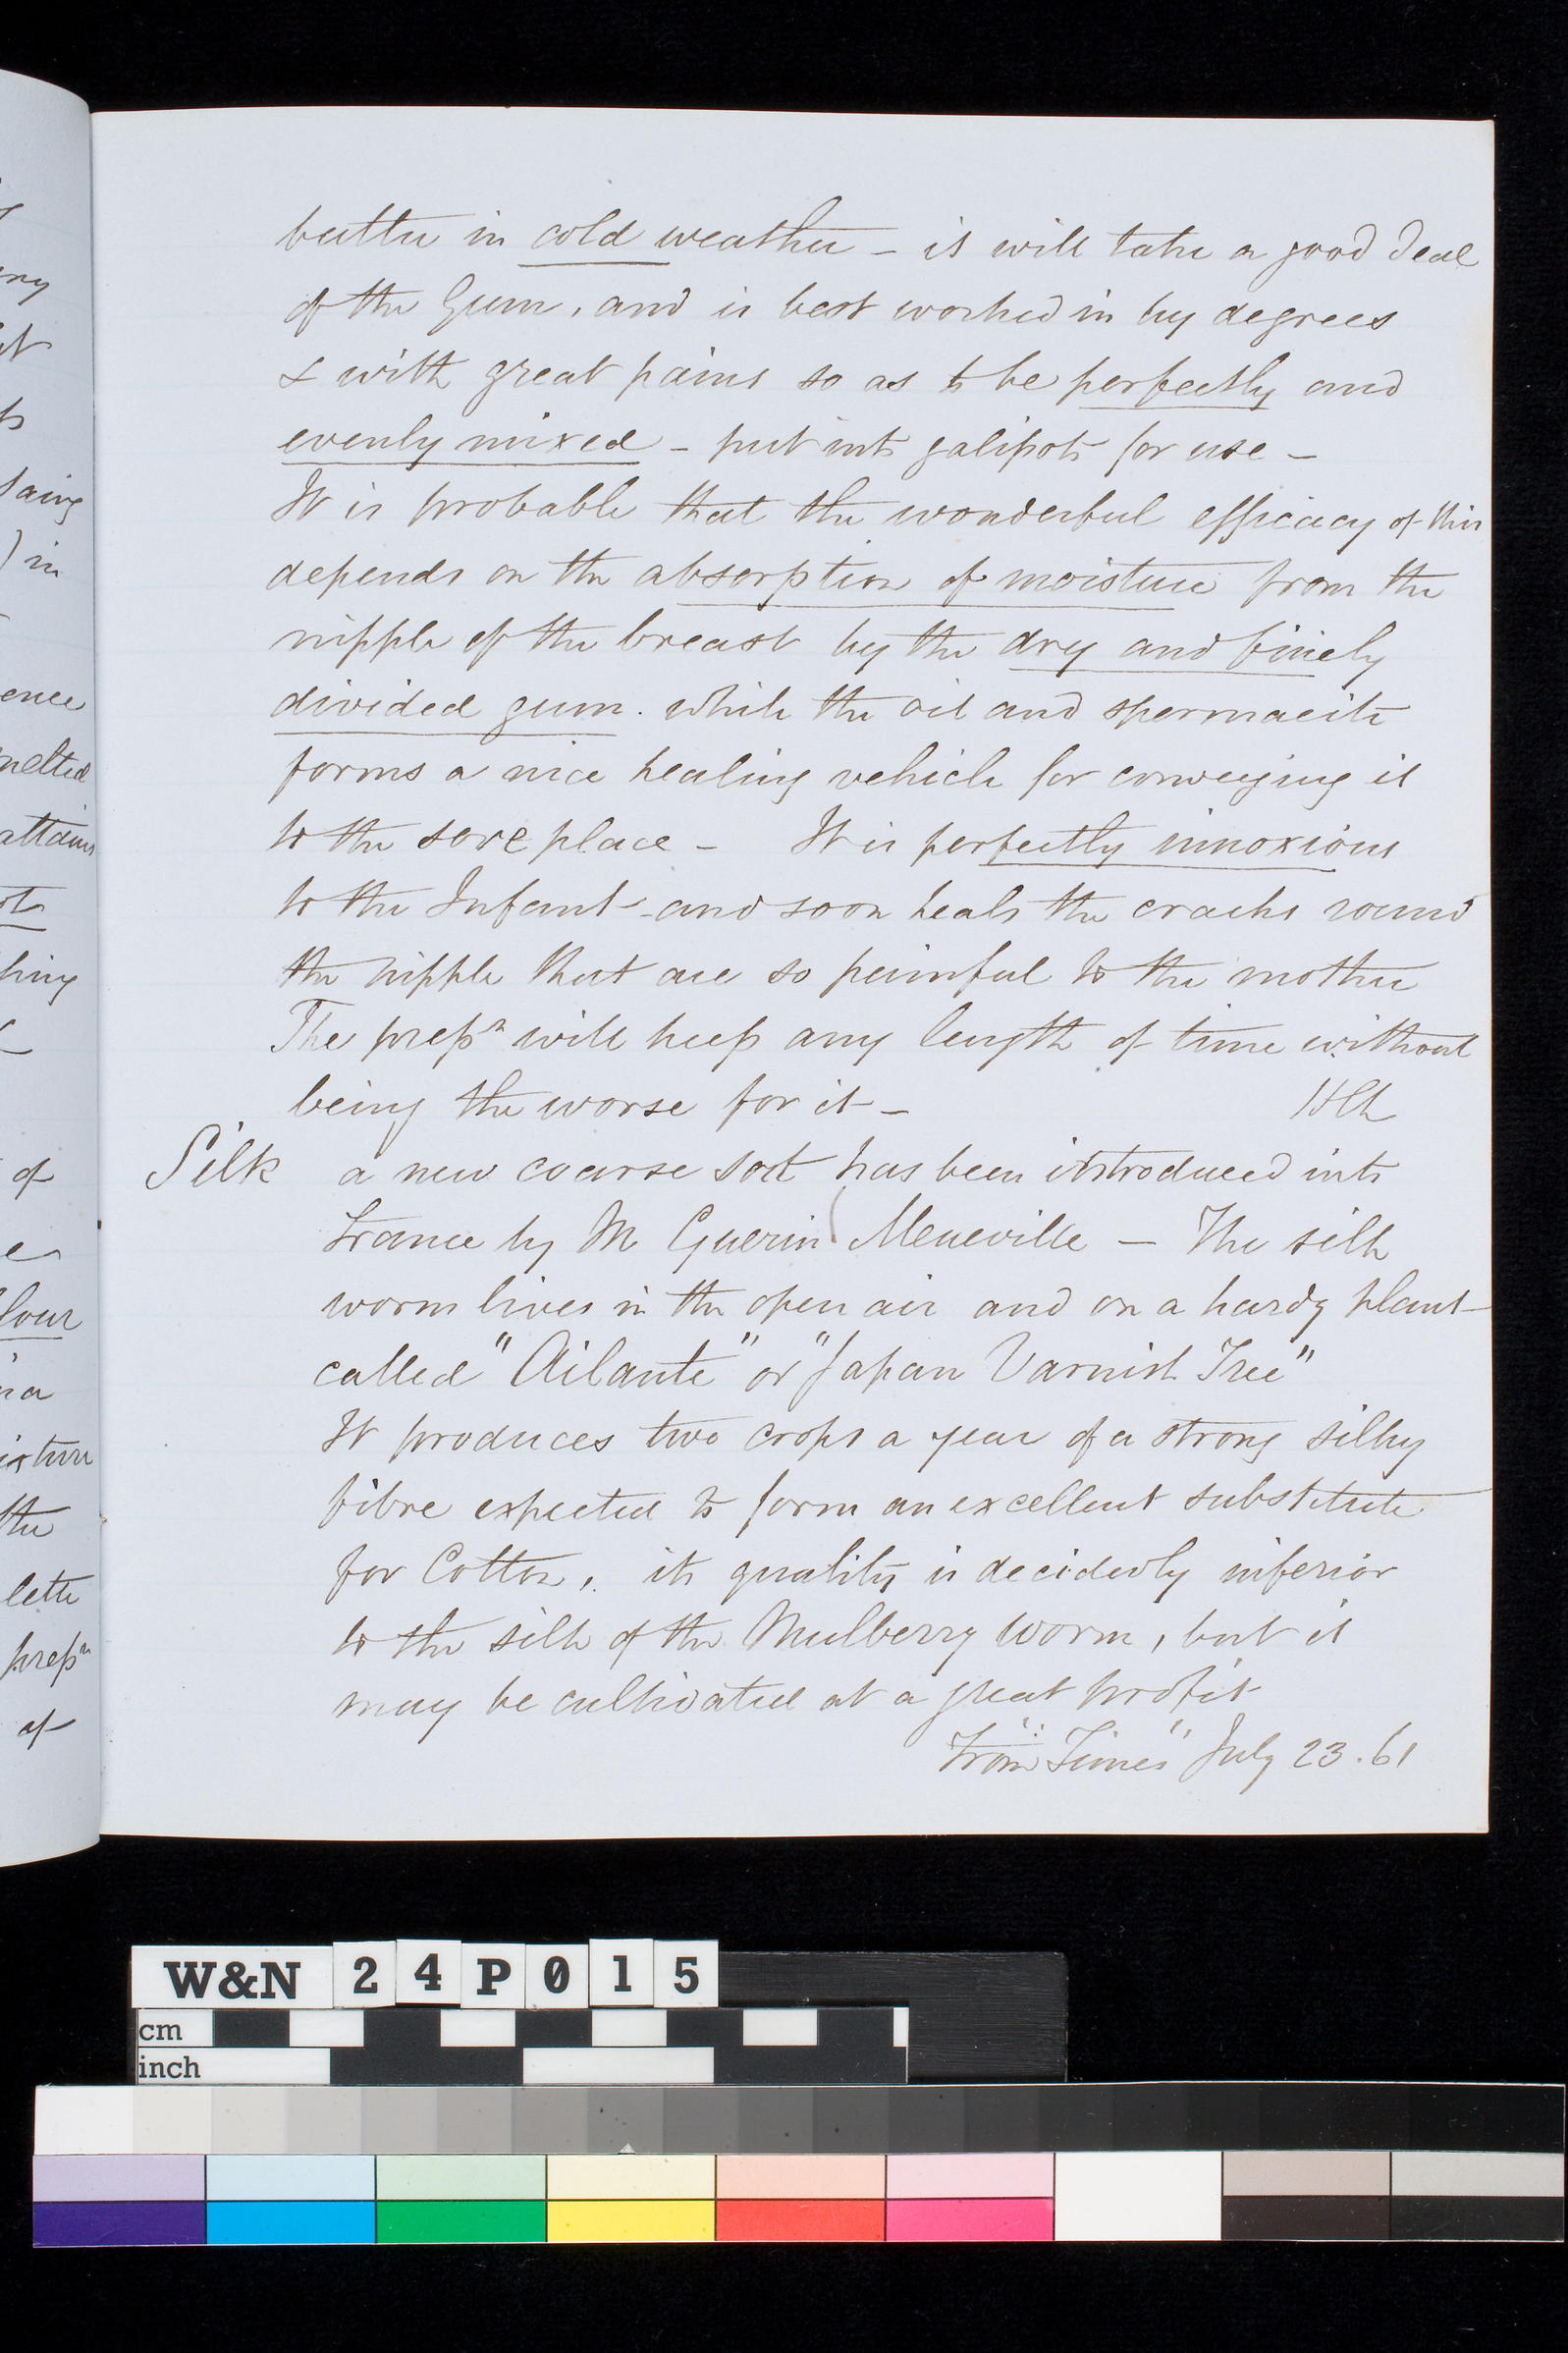 butter in cold weather - it will take a good deal
of the Gum, and is best worked in by degrees
& with great pains so as to be perfectly and
evenly mixed - put into galipots for use -
It is probable that the wonderful efficacy of this
depends on the absorption of moisture from the
nipple of the breast by the dry and finely
divided gum. while the oil and spermaciti
forms a nice healing vehicle for conveying it
to the sore place - It is perfectly innoxious
to the Infant - and soon heals the cracks round
the nipple that are so painful to the mother
The prepn will keep any length of time without
being the worse for it -
Silk a new coarse sort has been introduced into
France by M Guerin Meneville - The silk
worm lives in the open air and on a hardy plant
called "Ailante" or "Japan Varnish Tree"
It produces two crops a year of a strong silky
fibre expected to form an excellent substitute
for Cotton, its quality is decidedly inferior
to the silk of the Mulberry worm, but it
may be cultivated at a great profit
From "Times" July 23.61
ence
melted
attains
of
the
prepn
of
W&N 24P015
cm
inch